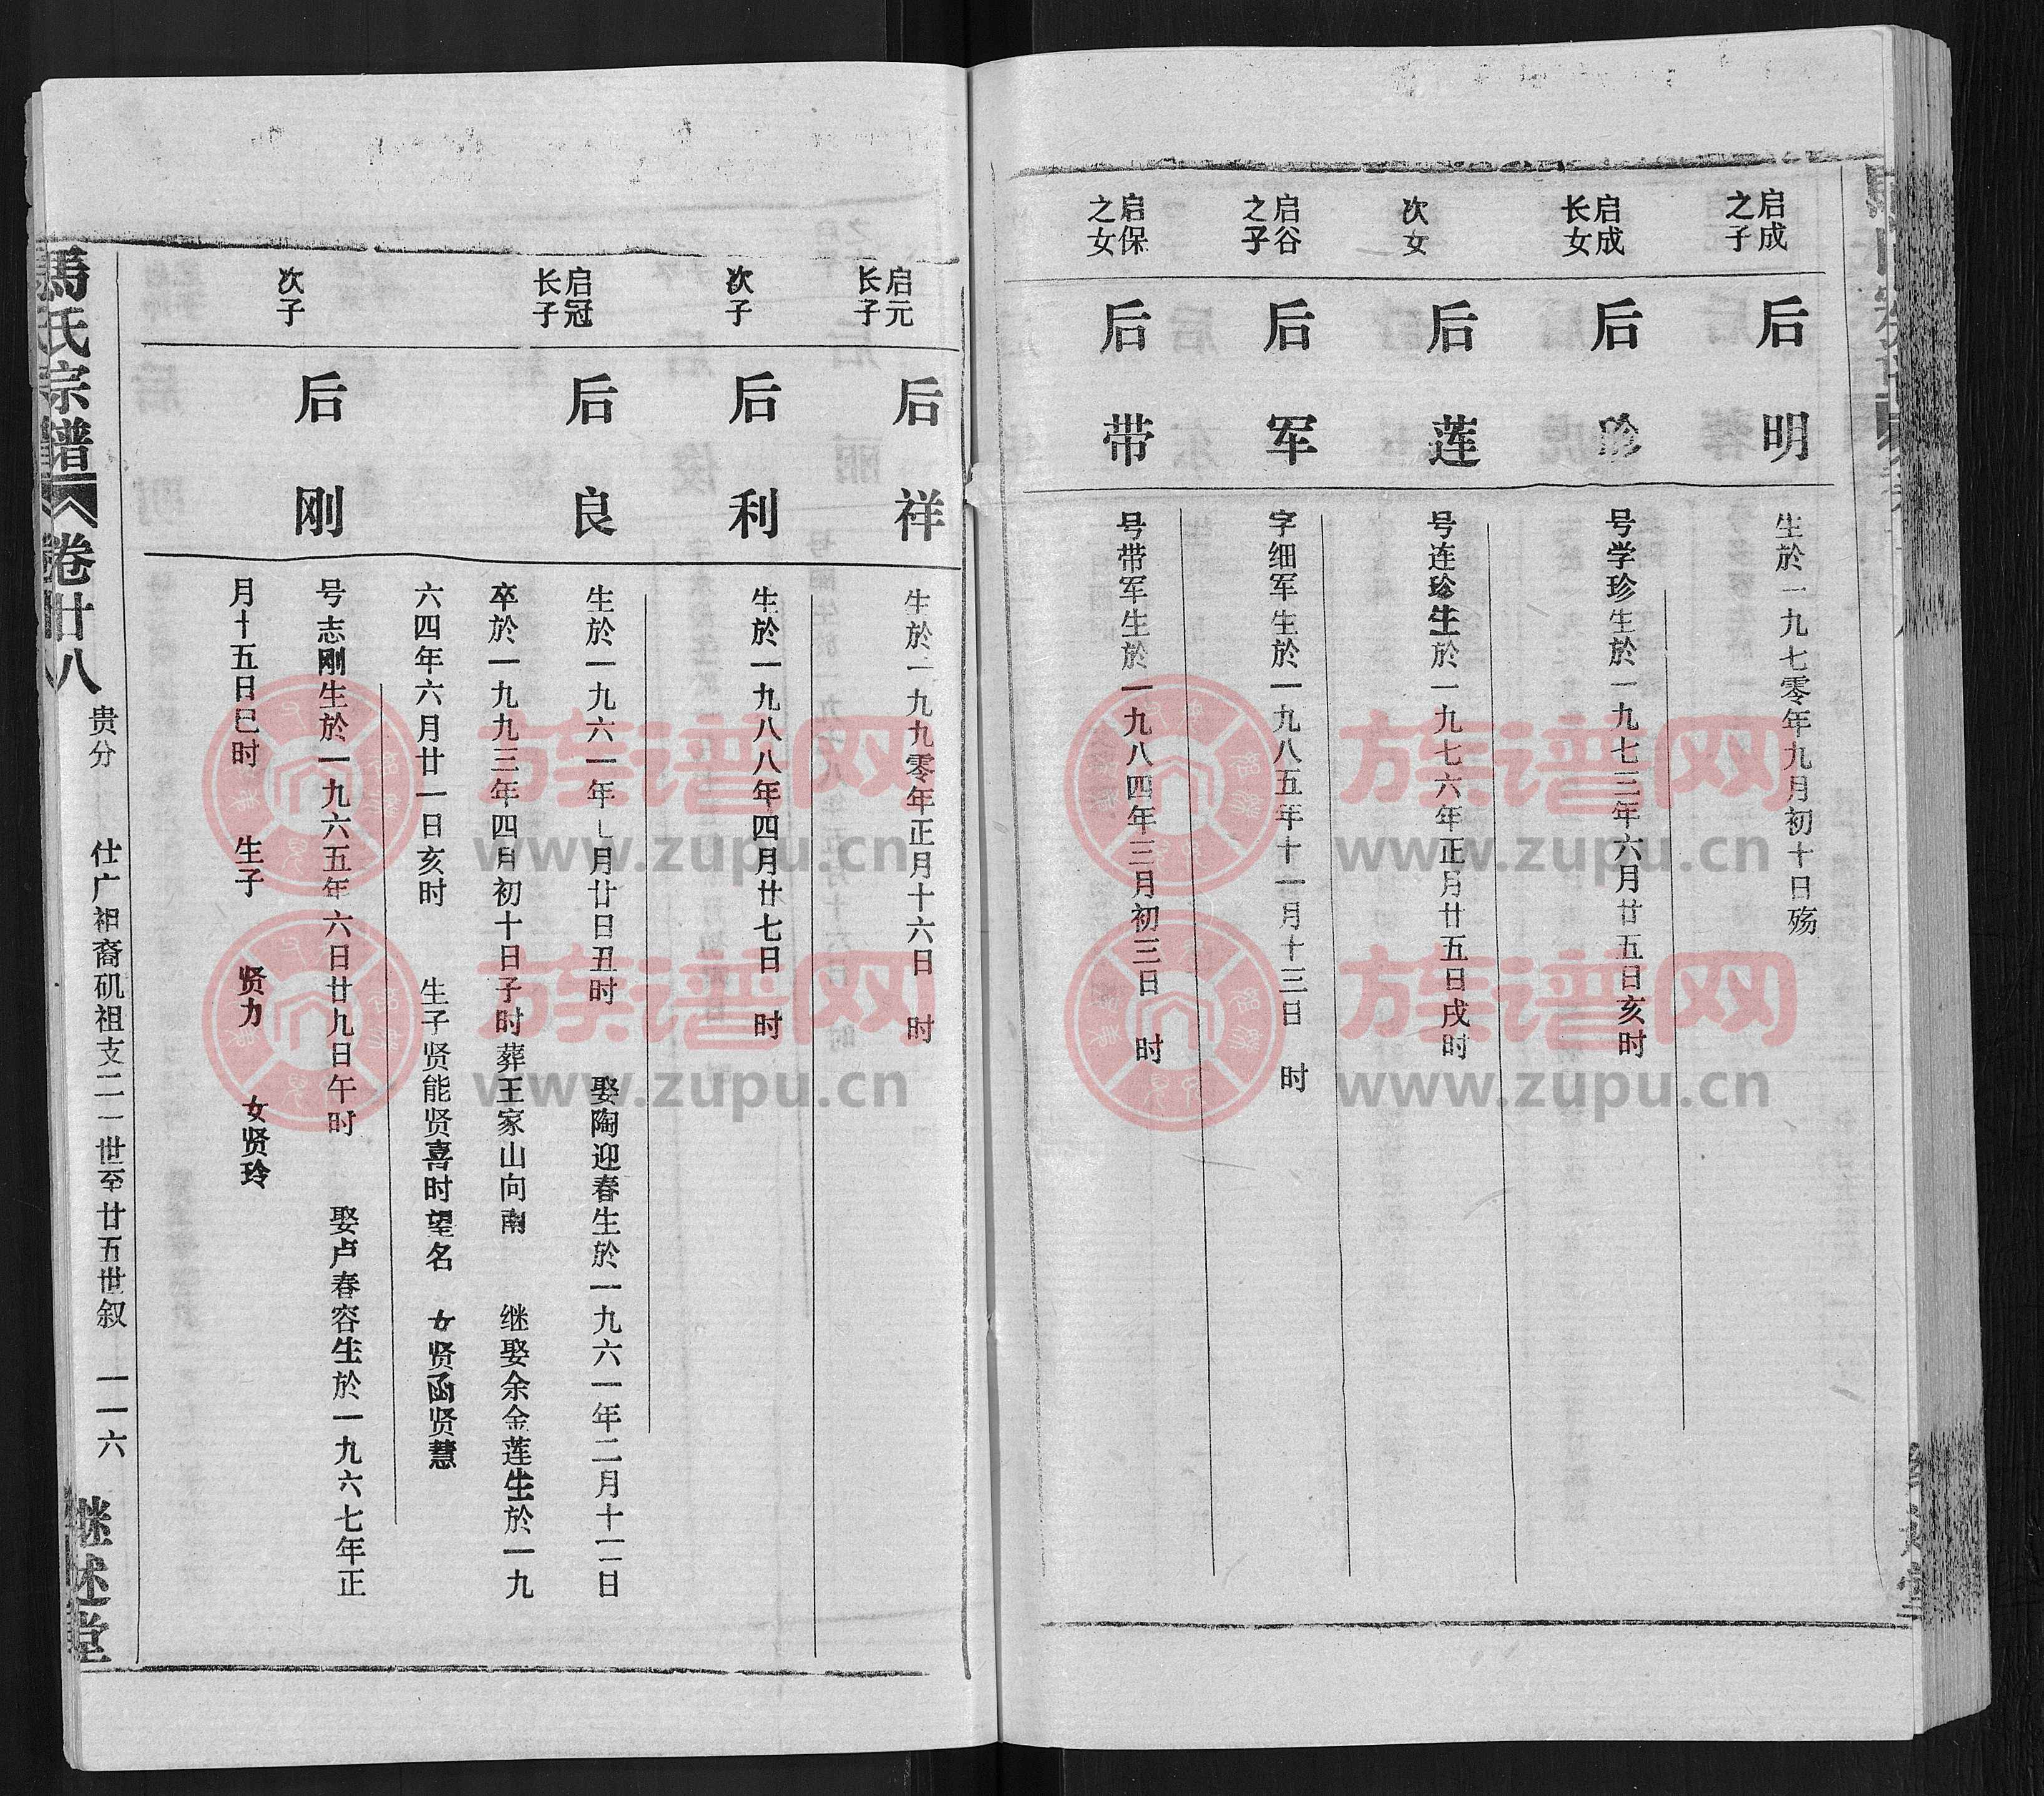 启成
之子
后明
生於一九七零年九月初十日殇
启成
长女
后珍
号学珍生於一九七三年六月廿五日亥时
次女
后莲
号连珍生於一九七六年正月廿五日戌时
启谷
之子
后军
字细军生於一九八五年十一月十三日 时
启保
之女
后带
号带军生於一九八四年三月初三日 时
启元
长子
后祥
生於一九九零年正月十六日 时
次子
后利
生於一九八八年四月廿七日 时
启冠
长子
后良
生於一九六一年七月廿日丑时 娶陶迎春生於一九六一年二月十二日
卒於一九九三年四月初十日子时葬王家山向南 继娶余金莲生於一九
六四年六月廿一日亥时 生子贤能贤喜时望名 女贤函贤慧
次子
后刚
号志刚生於一九六五年六日廿九日午时 娶卢春容生於一九六七年正
月十五日巳时 生子 贤力 女贤玲
馬氏宗譜 卷廿八 贵分 仕广祖裔矶祖支二一世至廿五世叙 一一六 继述堂
族谱网
www.zupu.cn
族谱网
www.zupu.cn
族谱网
www.zupu.cn
族谱网
www.zupu.cn